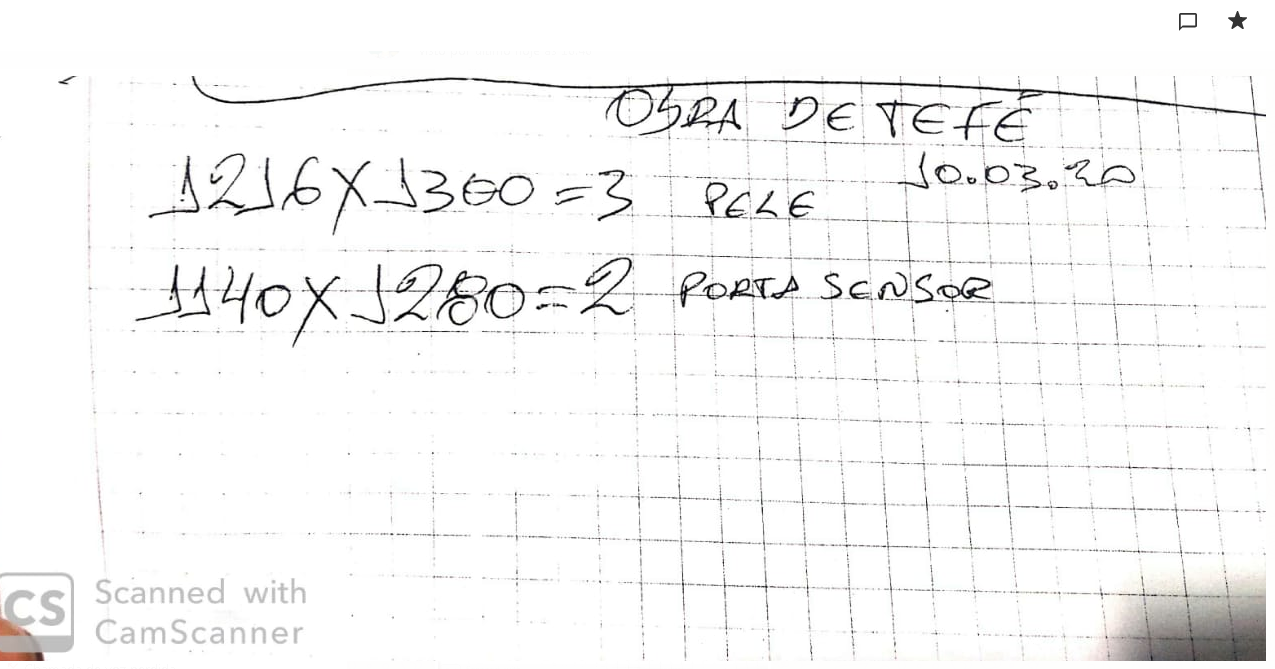 OBRA DE TEFÉ
10.03.20
1216X1360=3 PELE
1140X1280=2 PORTA SENSOR
CS Scanned with
CamScanner